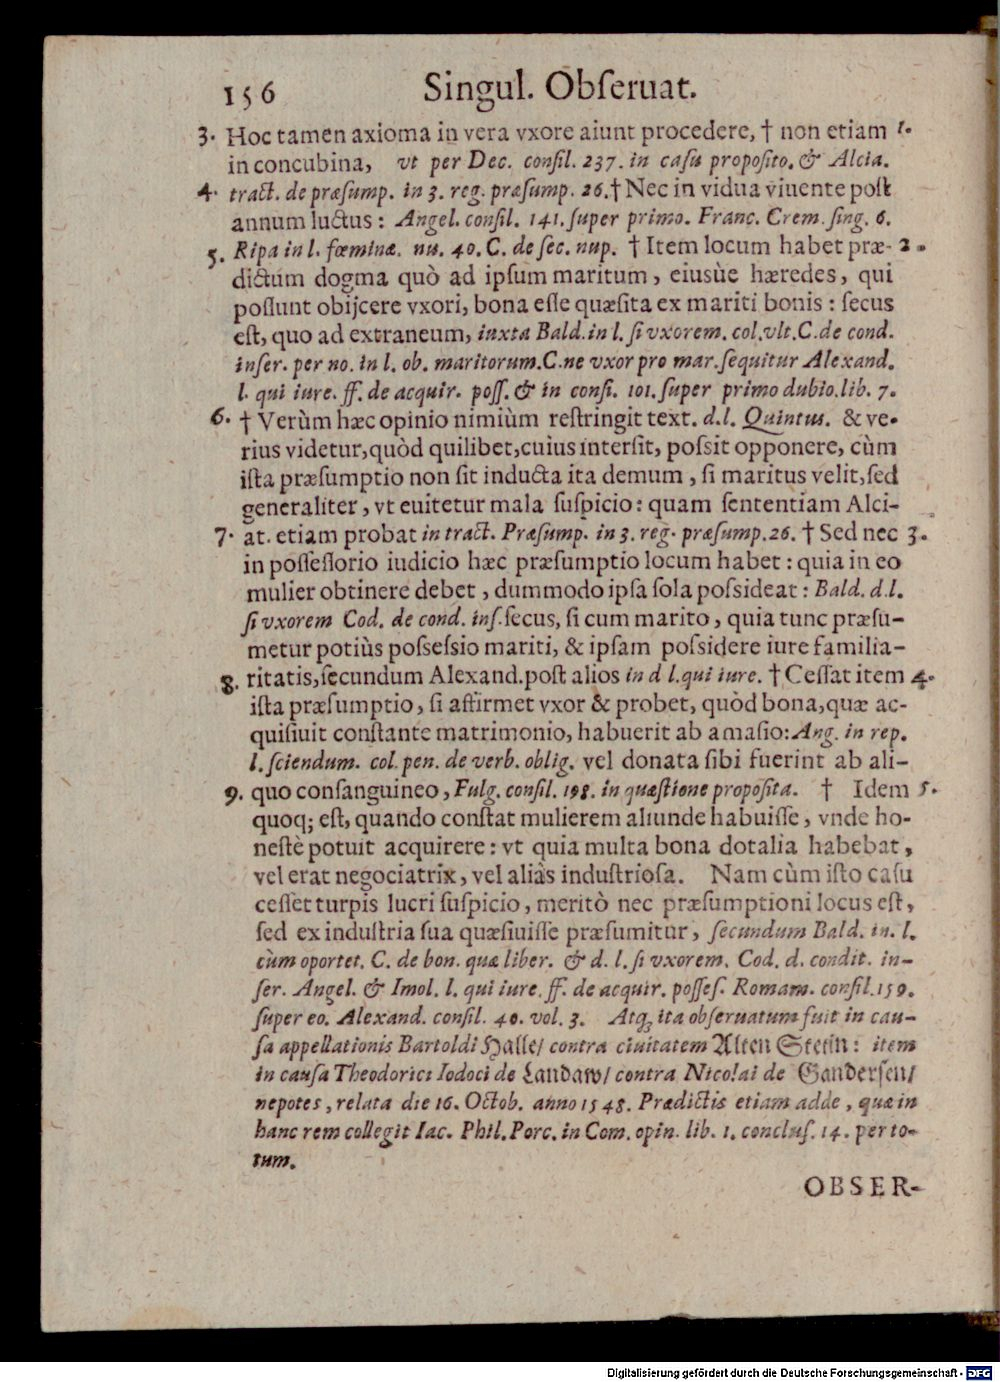 156 Singul. Obſeruat.
3. Hoc tamen axioma in vera vxore aiunt procedere, † non etiam 1.
in concubina, vt per Dec. conſil. 237. in caſu propoſito. & Alcia.
4. tract. de præſump. in 3. reg. præſump. 26. † Nec in vidua viuente poſt
annum luctus: Angel. conſil. 141. ſuper primo. Franc. Crem. ſing. 6.
5. Ripa in l. fœminæ. nu. 40. C. de ſec. nup. † Item locum habet præ- 2.
dictum dogma quò ad ipſum maritum, eiusùe hæredes, qui
poſſunt obijcere vxori, bona eſſe quæſita ex mariti bonis: ſecus
eſt, quo ad extraneum, iuxta Bald. in l. ſi vxorem. col. vlt. C. de cond.
inſer. per no. in l. ob. maritorum. C. ne vxor pro mar. ſequitur Alexand.
l. qui iure. ff. de acquir. poſſ. & in conſi. 101. ſuper primo dubio. lib. 7.
6. † Verùm hæc opinio nimiùm reſtringit text. d. l. Quintus. & ve-
rius videtur, quòd quilibet, cuius interſit, poſsit opponere, cùm
iſta præſumptio non ſit inducta ita demum, ſi maritus velit, ſed
generaliter, vt euitetur mala ſuſpicio: quam ſententiam Alci-
7. at. etiam probat in tract. Præſump. in 3. reg. præſump. 26. † Sed nec 3.
in poſſeſſorio iudicio hæc præſumptio locum habet: quia in eo
mulier obtinere debet, dummodo ipſa ſola poſsideat: Bald. d. l.
ſi vxorem Cod. de cond. inſ. ſecus, ſi cum marito, quia tunc præſu-
metur potiùs poſseſsio mariti, & ipſam poſsidere iure familia-
8. ritatis, ſecundum Alexand. poſt alios in d l. qui iure. † Ceſſat item 4.
iſta præſumptio, ſi affirmet vxor & probet, quòd bona, quæ ac-
quiſiuit conſtante matrimonio, habuerit ab amaſio: Ang. in rep.
l. ſciendum. col. pen. de verb. oblig. vel donata ſibi fuerint ab ali-
9. quo conſanguineo, Fulg. conſil. 198. in quæſtione propoſita. † Idem 5.
quoq; eſt, quando conſtat mulierem aliunde habuiſſe, vnde ho-
neſtè potuit acquirere: vt quia multa bona dotalia habebat,
vel erat negociatrix, vel aliàs induſtrioſa. Nam cùm iſto caſu
ceſſet turpis lucri ſuſpicio, meritò nec præſumptioni locus eſt,
ſed ex induſtria ſua quæſiuiſſe præſumitur, ſecundum Bald. in. l.
cùm oportet. C. de bon. quæ liber. & d. l. ſi vxorem. Cod. d. condit. in-
ſer. Angel. & Imol. l. qui iure. ff. de acquir. poſſeſ. Romam. conſil. 159.
ſuper eo. Alexand. conſil. 40. vol. 3. Atq; ita obſeruatum fuit in cau-
ſa appellationis Bartoldi Halle/ contra ciuitatem Alten Stetin: item
in cauſa Theodorici Iodoci de Landaw/ contra Nicolai de Ganderſen/
nepotes, relata die 16. Octob. anno 1548. Prædictis etiam adde, quæ in
hanc rem collegit Iac. Phil. Porc. in Com. opin. lib. 1. concluſ. 14. per to-
tum.
OBSER-
Digitalisierung gefördert durch die Deutsche Forschungsgemeinschaft - DFG